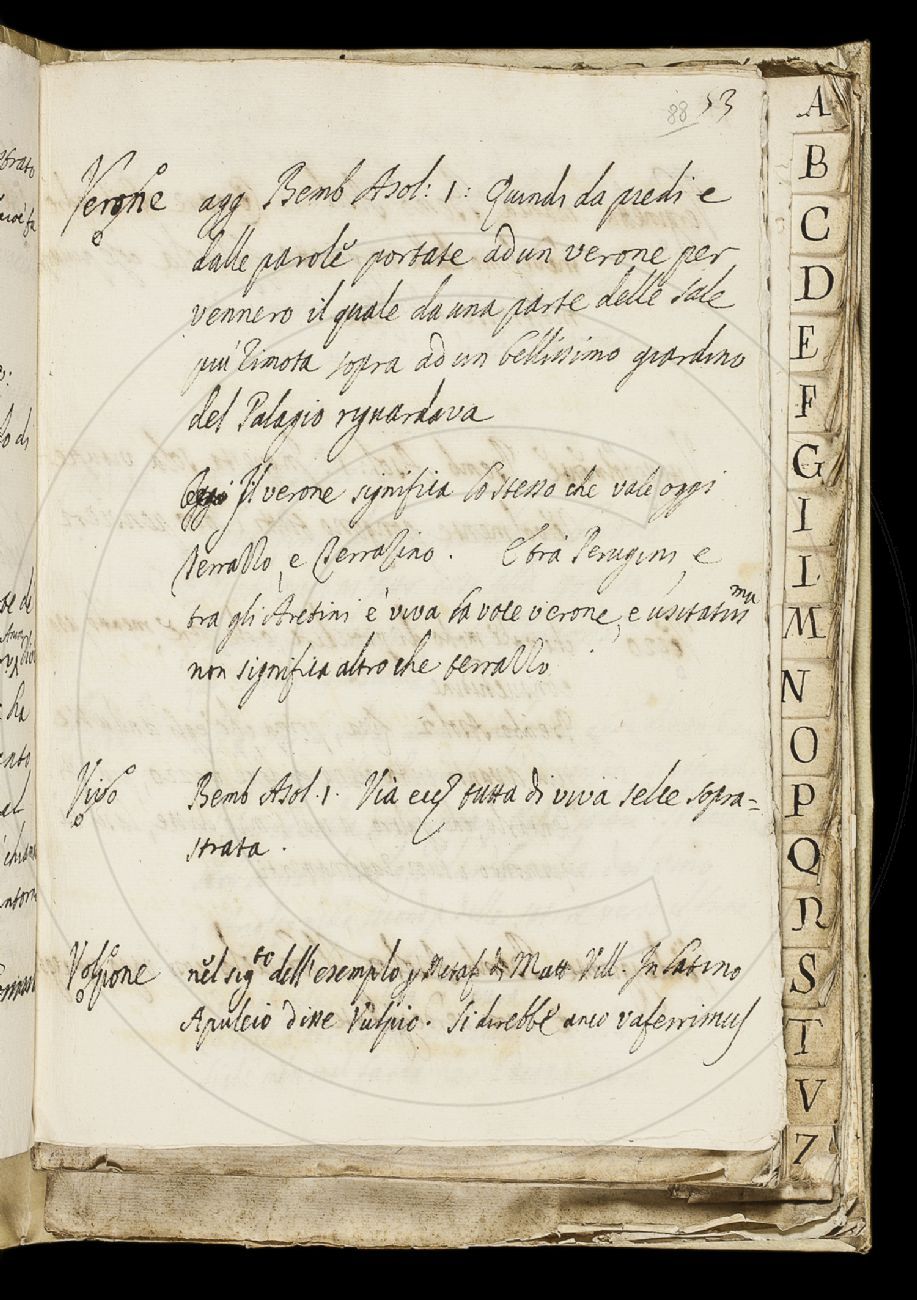 88 53
Verone agg Bemb Asol: 1: Quindi da piedi e
dalle parole portate ad un verone per
vennero il quale da una parte delle sale
piu rimota sopra ad un bellissimo giardino
del Palagio riguardava
Il verone significa lo stesso che vale oggi
terrazzo, e terrazino. E tra Perugini, e
tra gli Aretini è viva la voce verone, e usitatissma
non significa altro che terrazzo
Vivo Bemb Asol. 1. Via tutta di viva selce sopra=
strata.
Volpone nel sigto dell'esemplo Metaf di Matt Vill. In latino
Apuleio disse Vulpio. Si direbbe anco vaferrimus
A
B
C
D
E
F
G
I
L
M
N
O
P
Q
R
S
T
V
Z